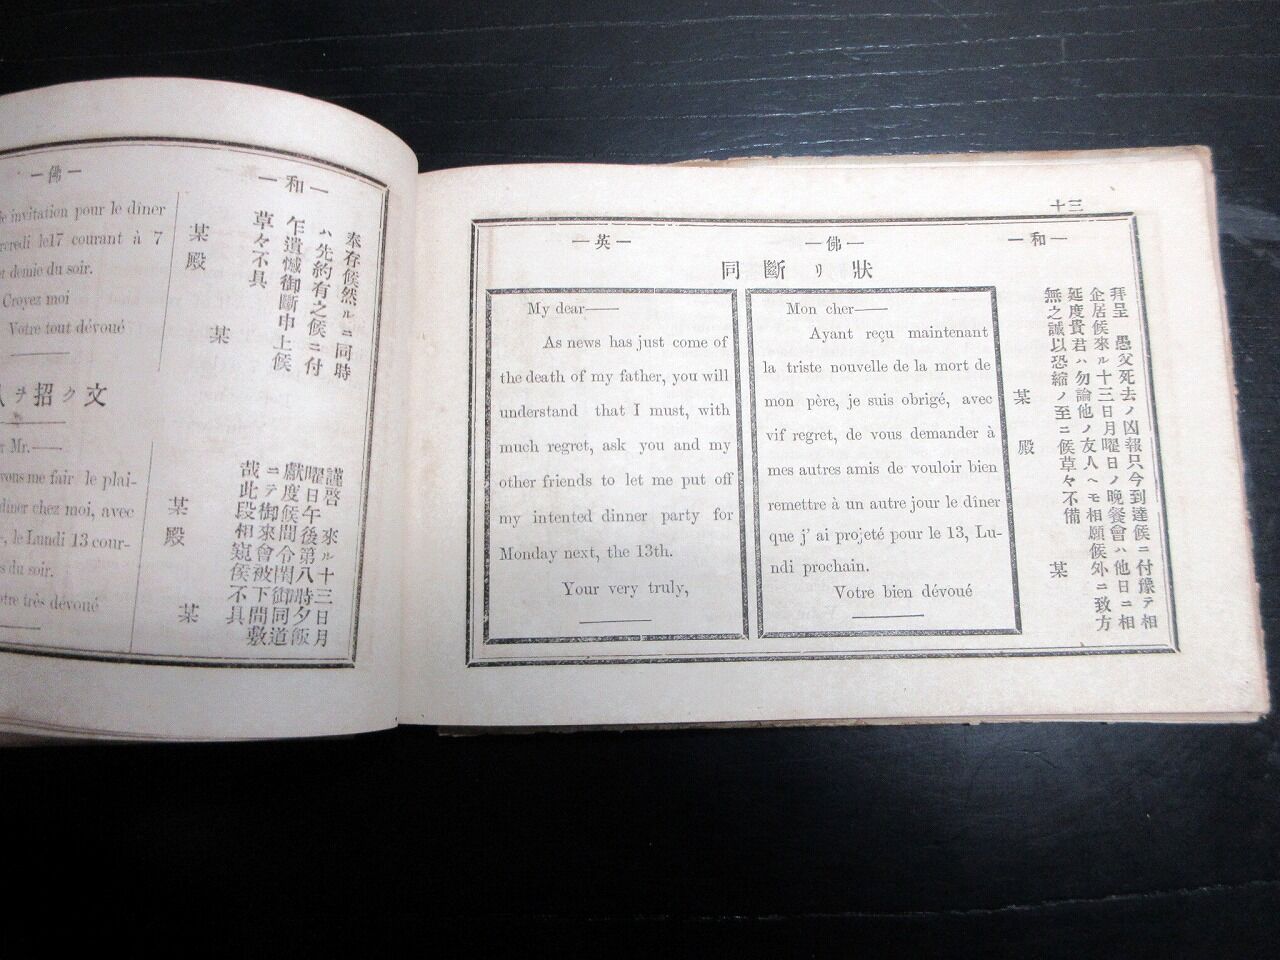 —佛—
invitation pour le dîner
credi le17 courant à 7
et demie du soir.
Croyez moi
Votre tout dévoué
招ク文
Mr.——
vous me fair le plai-
dîner chez moi, avec
, le Lundi 13 cour-
du soir.
otre très dévoué
—和—
奉存候然ルニ同時
ハ先約有之候ニ付
乍遺憾御斷申上候
草々不具
某
某殿
謹啓 來ル十三日月
曜日午後第八時夕飯
獻度候間令閨御同道
ニテ御來會被下間敷
哉此段相窺候不具
某
某殿
十三
—英—
—佛—
—和—
同斷リ狀
My dear——
As news has just come of
the death of my father, you will
understand that I must, with
much regret, ask you and my
other friends to let me put off
my intented dinner party for
Monday next, the 13th.
Your very truly,
Mon cher——
Ayant reçu maintenant
la triste nouvelle de la mort de
mon père, je suis obrigé, avec
vif regret, de vous demander à
mes autres amis de vouloir bien
remettre à un autre jour le dîner
que j' ai projeté pour le 13, Lu-
ndi prochain.
Votre bien dévoué
拜呈 愚父死去ノ凶報只今到達候ニ付豫テ相
企居候來ル十三日月曜日ノ晩餐會ハ他日ニ相
延度貴君ハ勿論他ノ友人ヘモ相願候外ニ致方
無之誠以恐縮ノ至ニ候草々不備
某
某殿